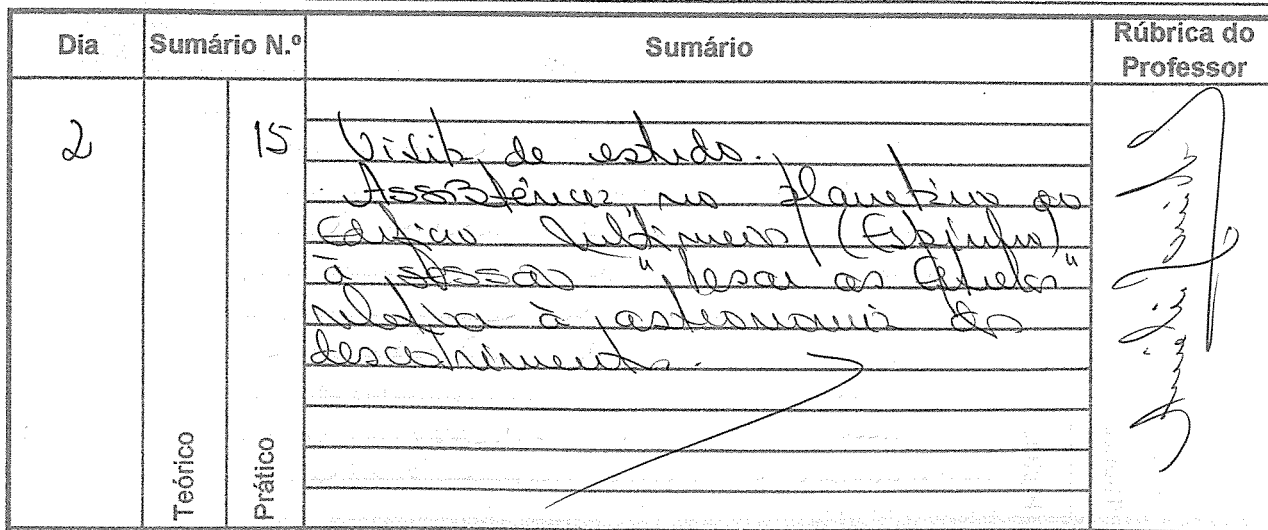 Dia Sumário N.º Sumário Rúbrica do Professor
2 15 Visita de estudo.
Assistência no planetário do
Edifício Multimeios (Espinho)
à sessão "Pesar as Estrelas"
relativa à astronomia dos
descobrimentos.
Teórico
Prático